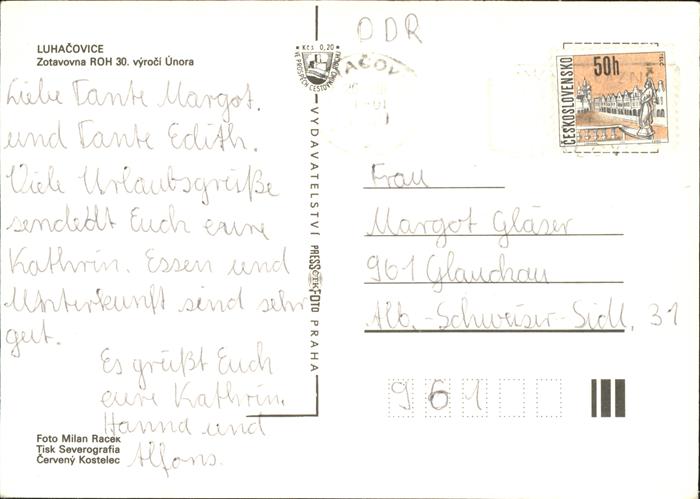 LUHAČOVICE
Zotavovna ROH 30. výročí Února
Liebe Tante Margot.
und Tante Edith.
Viele Urlaubsgrüße
sendet Euch eure
Kathrin. Essen und
Unterkunft sind sehr
gut.
Es grüßt Euch
eure Kathrin.
Hanna und
Alfons.
Foto Milan Racek
Tisk Severografia
Červený Kostelec
Kčs 0,20
VYDAVATELSTVÍ PRESSFOTO PRAHA
DDR
ČESKOSLOVENSKO
50h
TELČ
Frau
Margot Gläser
961 Glauchau
Alb.-Schweizer-Sidl. 31
961